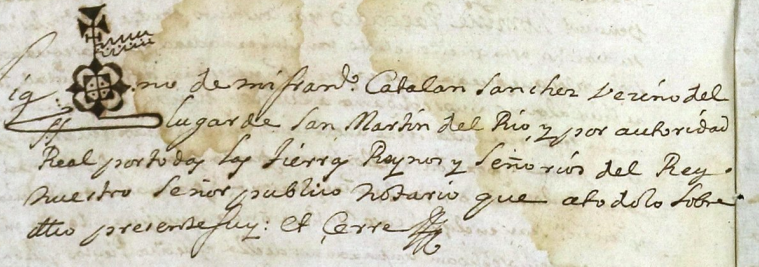 Sig no de mi Fran.co Catalan Sanchez Vezino del
lugar de San Martin del Rio, y por autoridad
Real por todas las tierras Reynos y Señorios del Rey
nuestro Señor publico notario que a todo lo sobre
dho presente fuy: et cerre